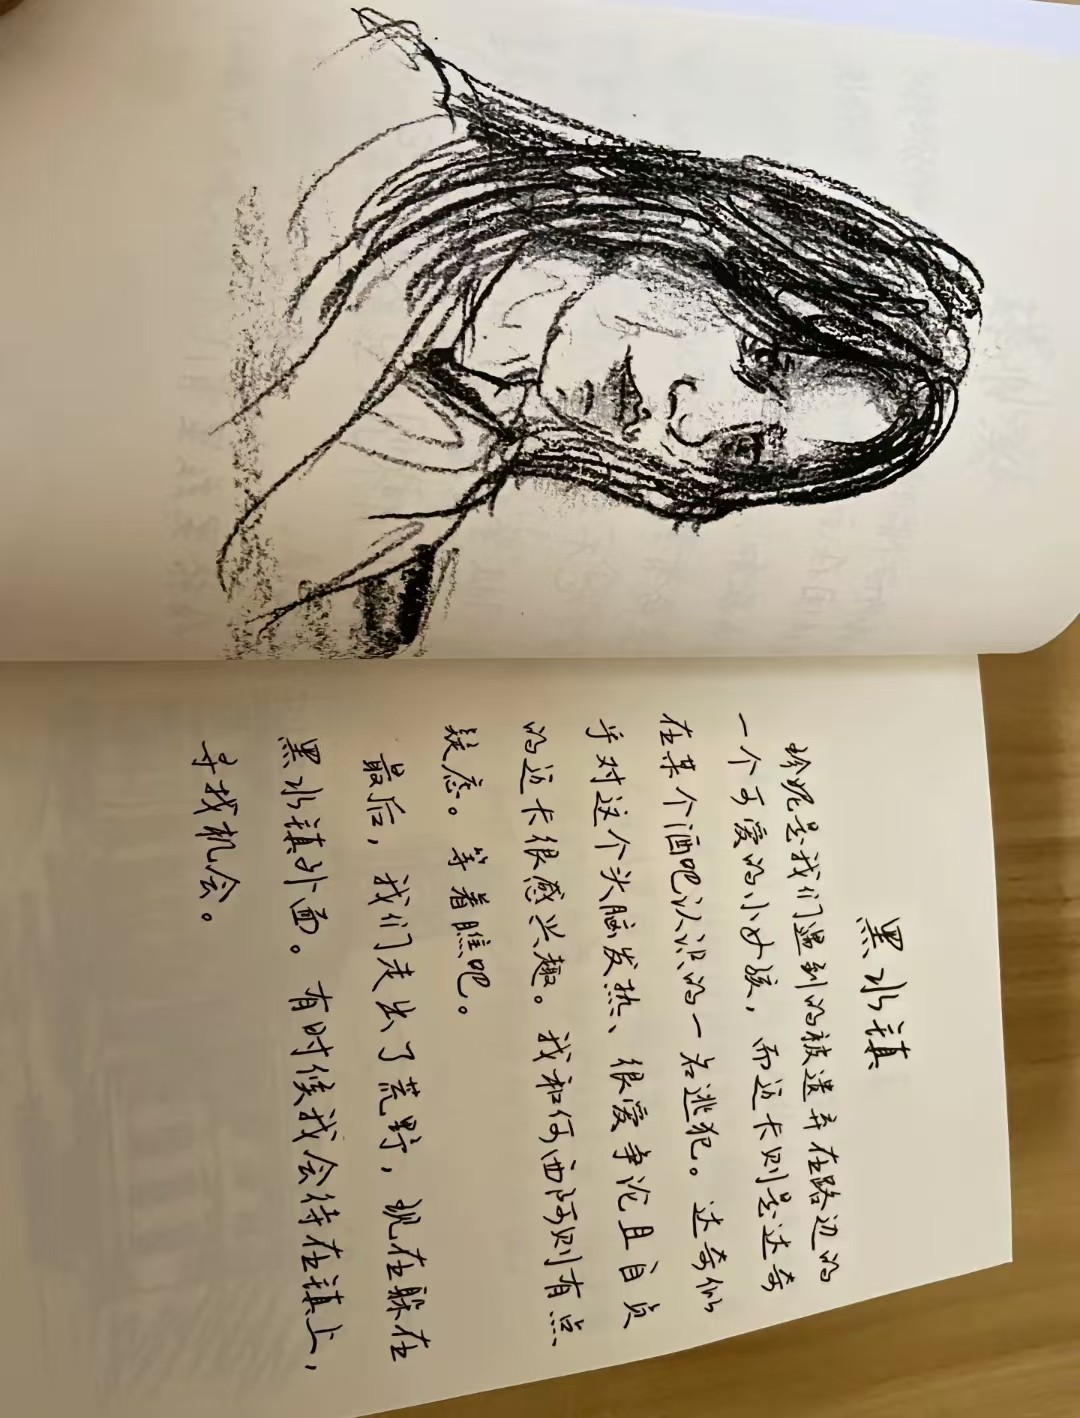 黑水镇
珍妮是我们遇到的被遗弃在路边的
一个可爱的小女孩，而迈卡则是达奇
在某个酒吧认识的一名逃犯。达奇似
乎对这个头脑发热、很爱争论且自负
的迈卡很感兴趣。我和何西阿则有点
疑虑。等着瞧吧。
最后，我们走出了荒野，现在躲在
黑水镇外面。有时候我会待在镇上，
寻找机会。